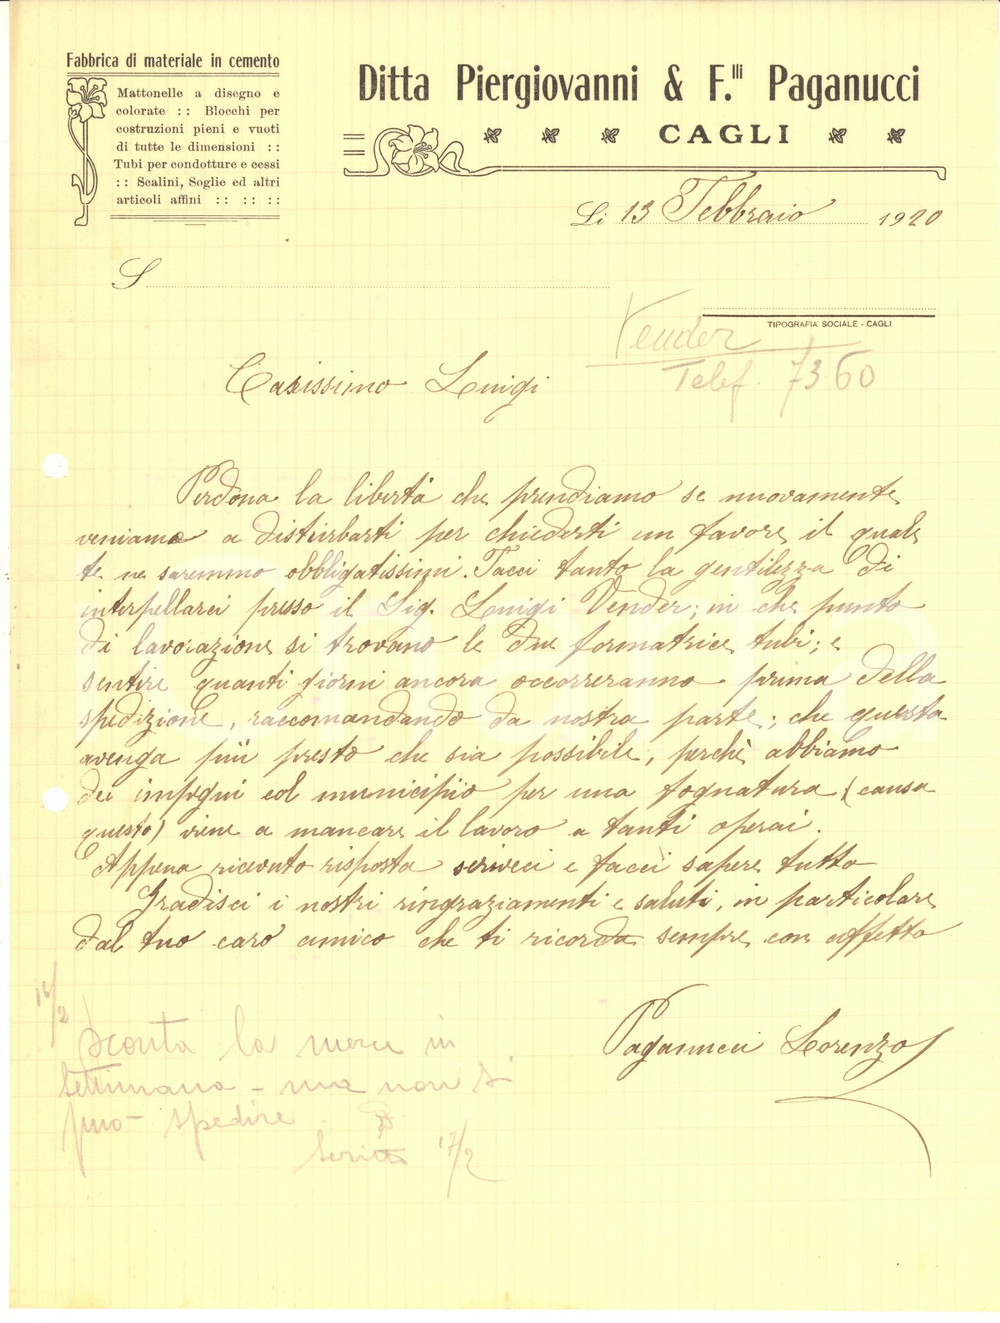 Fabbrica di materiale in cemento
Mattonelle a disegno e
colorate :: Blocchi per
costruzioni pieni e vuoti
di tutte le dimensioni ::
Tubi per condotture e cessi
:: Scalini, Soglie ed altri
articoli affini :: :: ::
Ditta Piergiovanni & F.lli Paganucci
CAGLI
Li 13 Febbraio 1920
S
TIPOGRAFIA SOCIALE - CAGLI
Vender
Telef. 7360
Carissimo Luigi
Perdona la libertà che prendiamo se nuovamente
veniamo a disturbarti per chiederti un favore il quale
te ne saremmo obbligatissimi. Facci tanto la gentilezza di
interpellarci presso il Sig. Luigi Vender; in che punto
di lavorazione si trovano le due formatrice tubi; e
sentire quanti giorni ancora occorreranno prima della
spedizione, raccomandando da nostra parte; che questa
avenga più presto che sia possibile, perchè abbiamo
dei impegni col municipio per una fognatura (causa
questo) viene a mancare il lavoro a tanti operai.
Appena ricevuto risposta scriveci e facci sapere tutto
Gradisci i nostri ringraziamenti e saluti, in particolare
dal tuo caro amico che ti ricorda sempre con affetto
Paganucci Lorenzo
16/2
Sconta la merce in
settimana - ma non si
può spedire.
Scritto 17/2